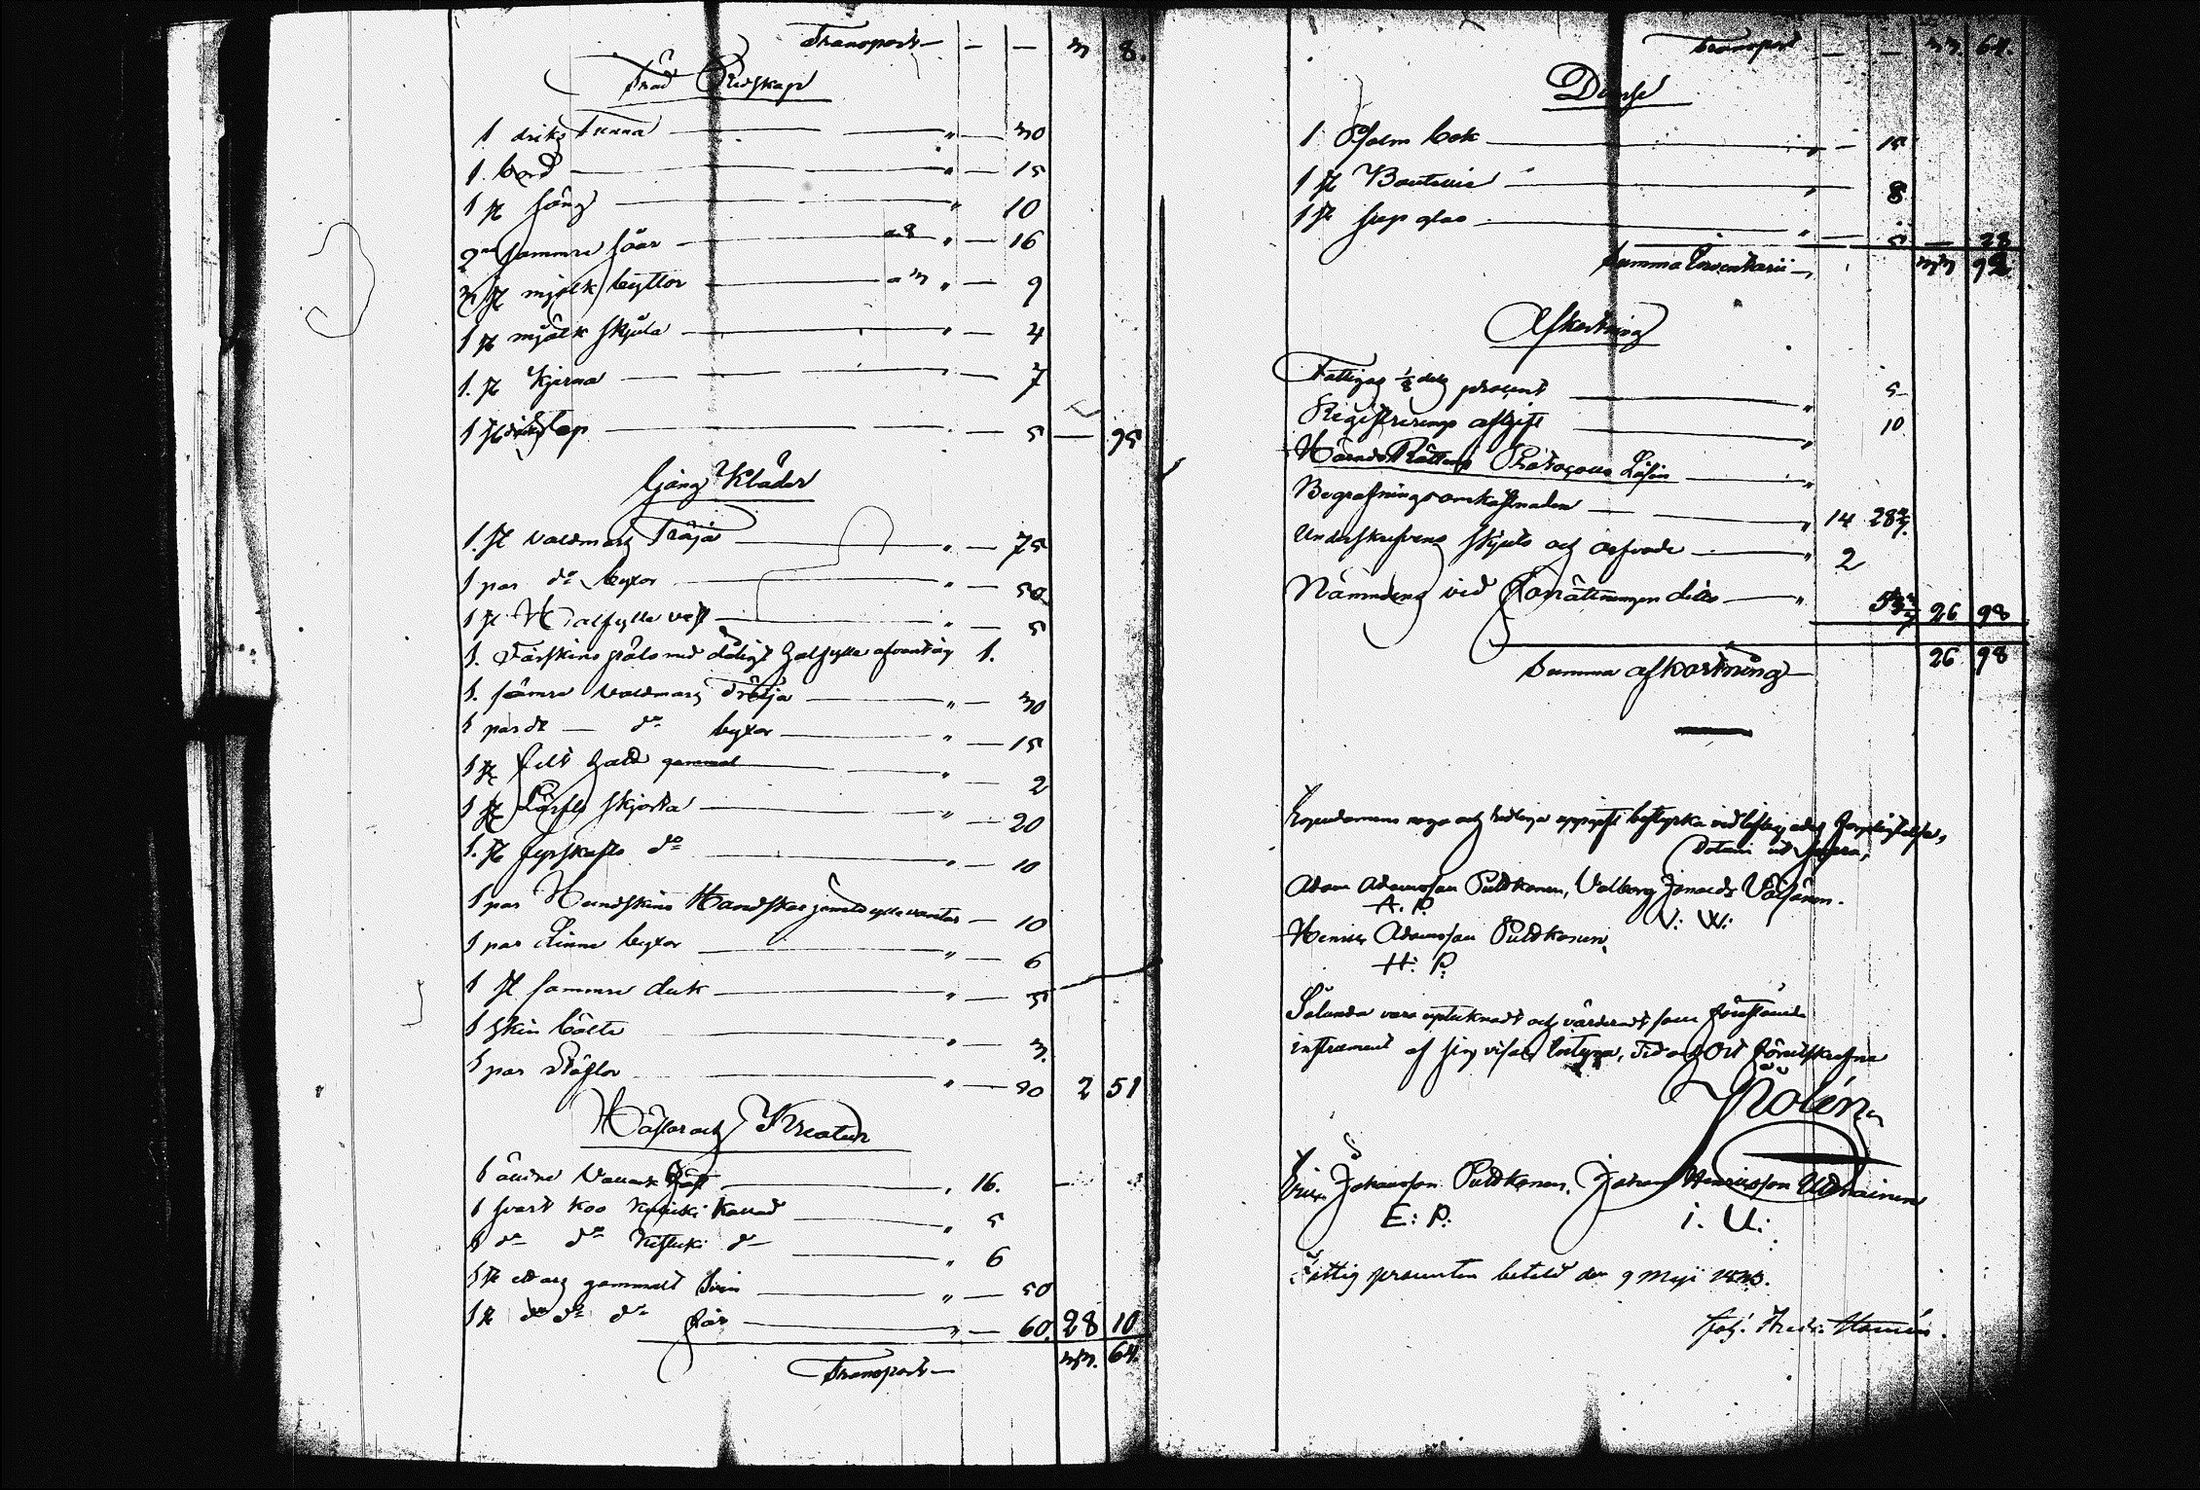 Transport — — — 3 8.
Träd Redskap
1 driks Tunna — " — 30
1. bord — " — 15
1 st sång — " — 10
2ne sämmre såar — a 8 " — 16
3 st mjölk byttor — a 3 " — 9
1 st mjölk skjula — " — 4
1. st Kjerna — " — 7
1 st stop — " — 5 — 95
Gång Kläder
1. st valdmars Tröja — " — 75
1 par do byxor — " — 50
1 st Halfylle väst — " — 5
1. Fårskins päls med dåligt halfylle 1.
1. sämre valdmars Tröja — " — 30
1 par dt — do byxor — " — 15
1 st filt hatt gammal — " — 2
1 st Lärfts skjorta — " — 20
1. st fyrskafts do — " — 10
1 par Hundskins Handskar jämte ylle vantar — 10
1 par Linne byxor — " — 6
1 st sammre duk — " — 5
1 skin bälte — " — 3.
1 par Stöflor — " — 20 2 51
Hästar och Kreatur
1 äldre Vallack häst — " 16. —
1 svart koo kallad — " 5
1 do do do — " 6
1 st gammalt Svin — " — 50
1 st do do do får — " — 60. 28 10
Transport — 33. 64.
Transport — — 33. 64.
Diverse
1 Psalm bok — " — 15
1 st Boutelie — " 8
1 st sup glas — " — 5 — 28
Summa Inventarii — 33 92
Afkortning
Fattigas 1/8 dels procent — " 5
Registrerings afgift — " 10
Härads Rättens Protocolls Lösen — "
Begrafningsomkostnaden — " 14 28 4/7.
Underskrefvens skjuts och arfvode — " 2
Nämndens vid förrättningen dito — " 26 98
Summa afkortning — 26 98
uppgift bestyrka vid förpligtelse,
Datum ut supra,
Adam Adamsson Puldkonen, Valborg Jonasdr Väisänen.
A. P. V: W:
Henric Adamsson Puldkonen,
H: P.
Sålunda vara uptecknadt och värderadt som förestående
instrument af sig visar betyga, Tid och Ort förutskrefne
Nolén
Eric Johansson Puldkonen. Johan Henricsson Uldiainen
E: P. I. U:
Fattig procenten betald den 9 Maji